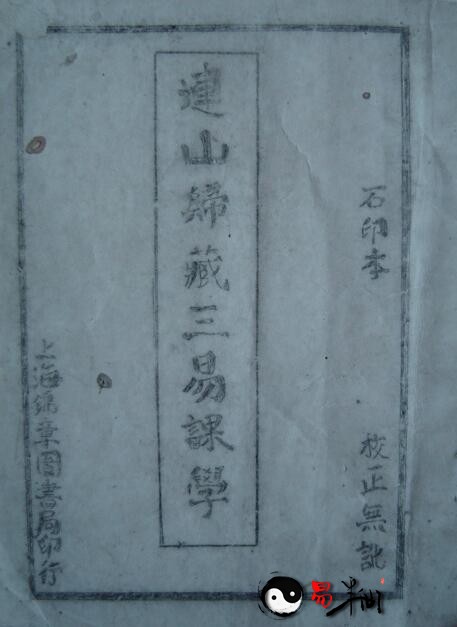 石印本
校正無訛
連山歸藏三易課學
上海錦章圖書局印行
易半仙